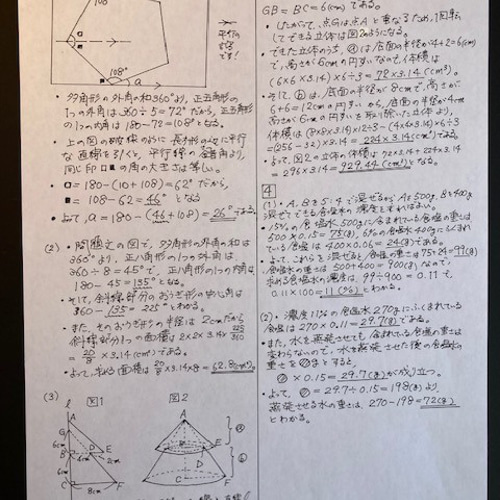 108°
平行の線です!
108°
a
・多角形の外角の和360°より、正五角形の
1つの外角は360÷5=72°だから、正五角形
の1つの内角は180-72=108°となる。
・上の図の破線のように長方形の辺に平行
な直線を引くと、平行線の錯角より、
同じ印の角の大きさは等しい。
・● = 180-(10+108)=62°だから、
■ = 108-62=46°となる
・よって、a = 180-(46+108)=26°である。
(2)・問題文の図で、多角形の外角の和は
360°より、正八角形の1つの外角は
360÷8=45°で、正八角形の1つの内角は
180-45=135°となる。
・そして、斜線部分のおうぎ形の中心角は
360-135=225°とわかる。
・また、そのおうぎ形の半径は2cmだから
斜線部分1つの面積は2×2×3.14×225/360
=20/8×3.14(cm²)である。
・よって、求める面積は20/8×3.14×8=62.8cm²である。
(3)
図1
図2
ℓ
A
G
6cm
B
D
E
6cm
2cm
6cm
C
8cm
F
A
E
D
C
F
ⓐ
ⓑ
GB=BC=6(cm)である。
・したがって、点Gは点Aと重なるため、1回転
してできる立体は図2のようになる。
・できた立体のうち、ⓐは底面の半径が4+2=6(cm)
で、高さが6cmの円すいなので、体積は
(6×6×3.14)×6÷3=72×3.14(cm³)。
・そして、ⓑは、底面の半径が8cmで、高さが
6+6=12cmの円すいから、底面の半径が4cm
高さが6cmの円すいを取り除いた立体より、
体積は(8×8×3.14)×12÷3-(4×4×3.14)×6÷3
=(256-32)×3.14=224×3.14(cm³)である。
・よって、図2の立体の体積は72×3.14+224×3.14
=296×3.14=929.44(cm³)となる。
4
(1)・A、Bを5:4で混ぜるからAを500g、Bを400g
混ぜてできる食塩水の濃度を求めればよい。
・15%の食塩水500gに含まれている食塩の重さは
500×0.15=75(g)、6%の食塩水400gにふくまれ
ている食塩は400×0.06=24(g)である。
・よって、これらを混ぜると、食塩の重さは75+24=99(g)
食塩水の重さは500+400=900(g)なので、
求める食塩水の濃度は、99÷900=0.11で、
0.11×100=11(%)とわかる。
(2)・濃度11%の食塩水270gにふくまれている
食塩は270×0.11=29.7(g)である。
・また、水を蒸発させても含まれている食塩の重さは
変わらないので、水を蒸発させた後の食塩水の
重さを とすると
×0.15=29.7(g)が成り立つ。
・よって、 =29.7÷0.15=198(g)より、
蒸発させる水の重さは、270-198=72(g)
とわかる。